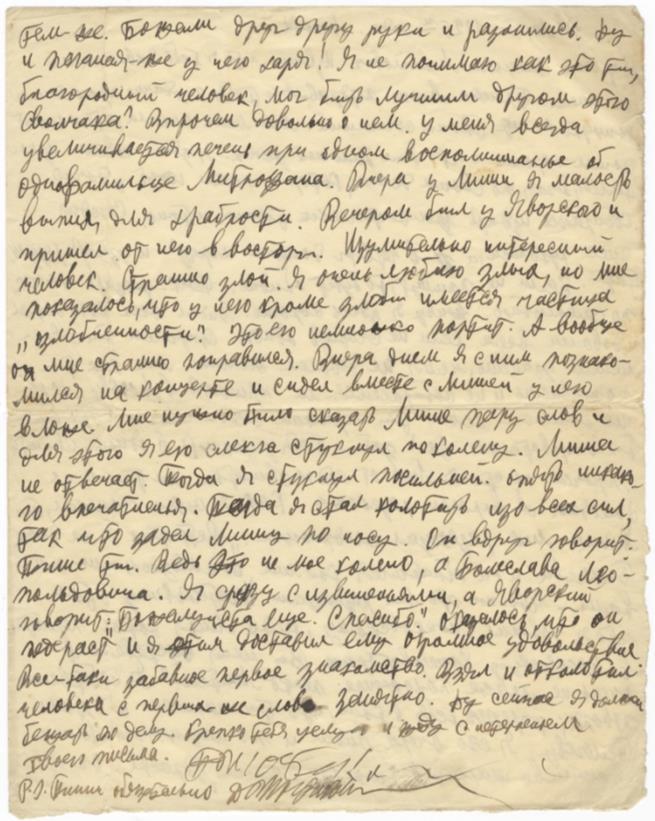 тем-же. Пожали друг другу руки и разошлись. Ну
и поганая-же у него харя! Я не понимаю как это ты,
благородный человек, мог быть лучшим другом этого
сволчака? Впрочем довольно о нем. У меня всегда
увеличивается печень при одном воспоминанье об
однофамильце Митро
Вчера у Миши я малость
выпил, для храбрости. Вечером был у Яворского и
пришел от него в восторг. Изумительно интересный
человек. Страшно злой. Я очень люблю злых, но мне
показалось, что у него кроме злобы имеется частица
„озлобленности“! Это его немножко портит. А вообще
он мне страшно понравился. Вчера днем я с ним познако-
мился на концерте и сидел вместе с Мишей у него
в ложе. Мне нужно было сказать Мише пару слов и
для этого я его слегка стукнул по колену. Миша
не отвечает. Тогда я стукнул посильней. опять никако-
го впечатленья. Тогда я стал колотить изо всех сил,
так что задел Мишу по носу. Он вдруг говорит:
Тише ты. Ведь это не мое колено, а Болеслава Лео-
польдовича. Я сразу с извинениями, а Яворский
говорит: Пожалуйста еще. Спасибо." оказалось, что он
и я этим доставил ему огромное удовольствие
Все-таки забавное первое знакомство. Взял и отколотил
человека с первого же слова. Занятно. Ну сейчас я должен
бежать по делу. Крепко тебя целую и жду с нетерпеньем
твоего письма.
P.S. Пиши обязательно